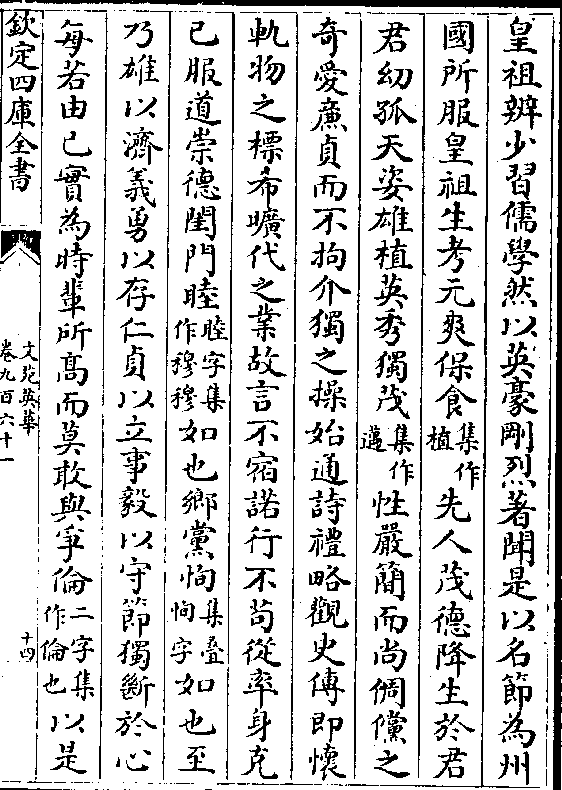 皇祖辨少習儒學然以英豪剛烈著聞是以名節為州
國所服皇祖生考元爽保食集作植先人茂德降生於君
君幼孤天姿雄植英秀獨茂集作邁性嚴簡而尚倜儻之
奇愛亷貞而不拘介獨之操始通詩禮略觀史傳即懷
軌物之標希曠代之業故言不宿諾行不苟從率身克
己服道崇德閨門睦睦字集作穆穆如也鄉黨恂集疊恂字如也至
乃雄以濟義勇以存仁貞以立事毅以守節獨斷於心
每若由己實為時軰所髙而莫敢與爭倫二字集作倫也以是
欽定四庫全書
文苑英華
卷九百六十一
十四